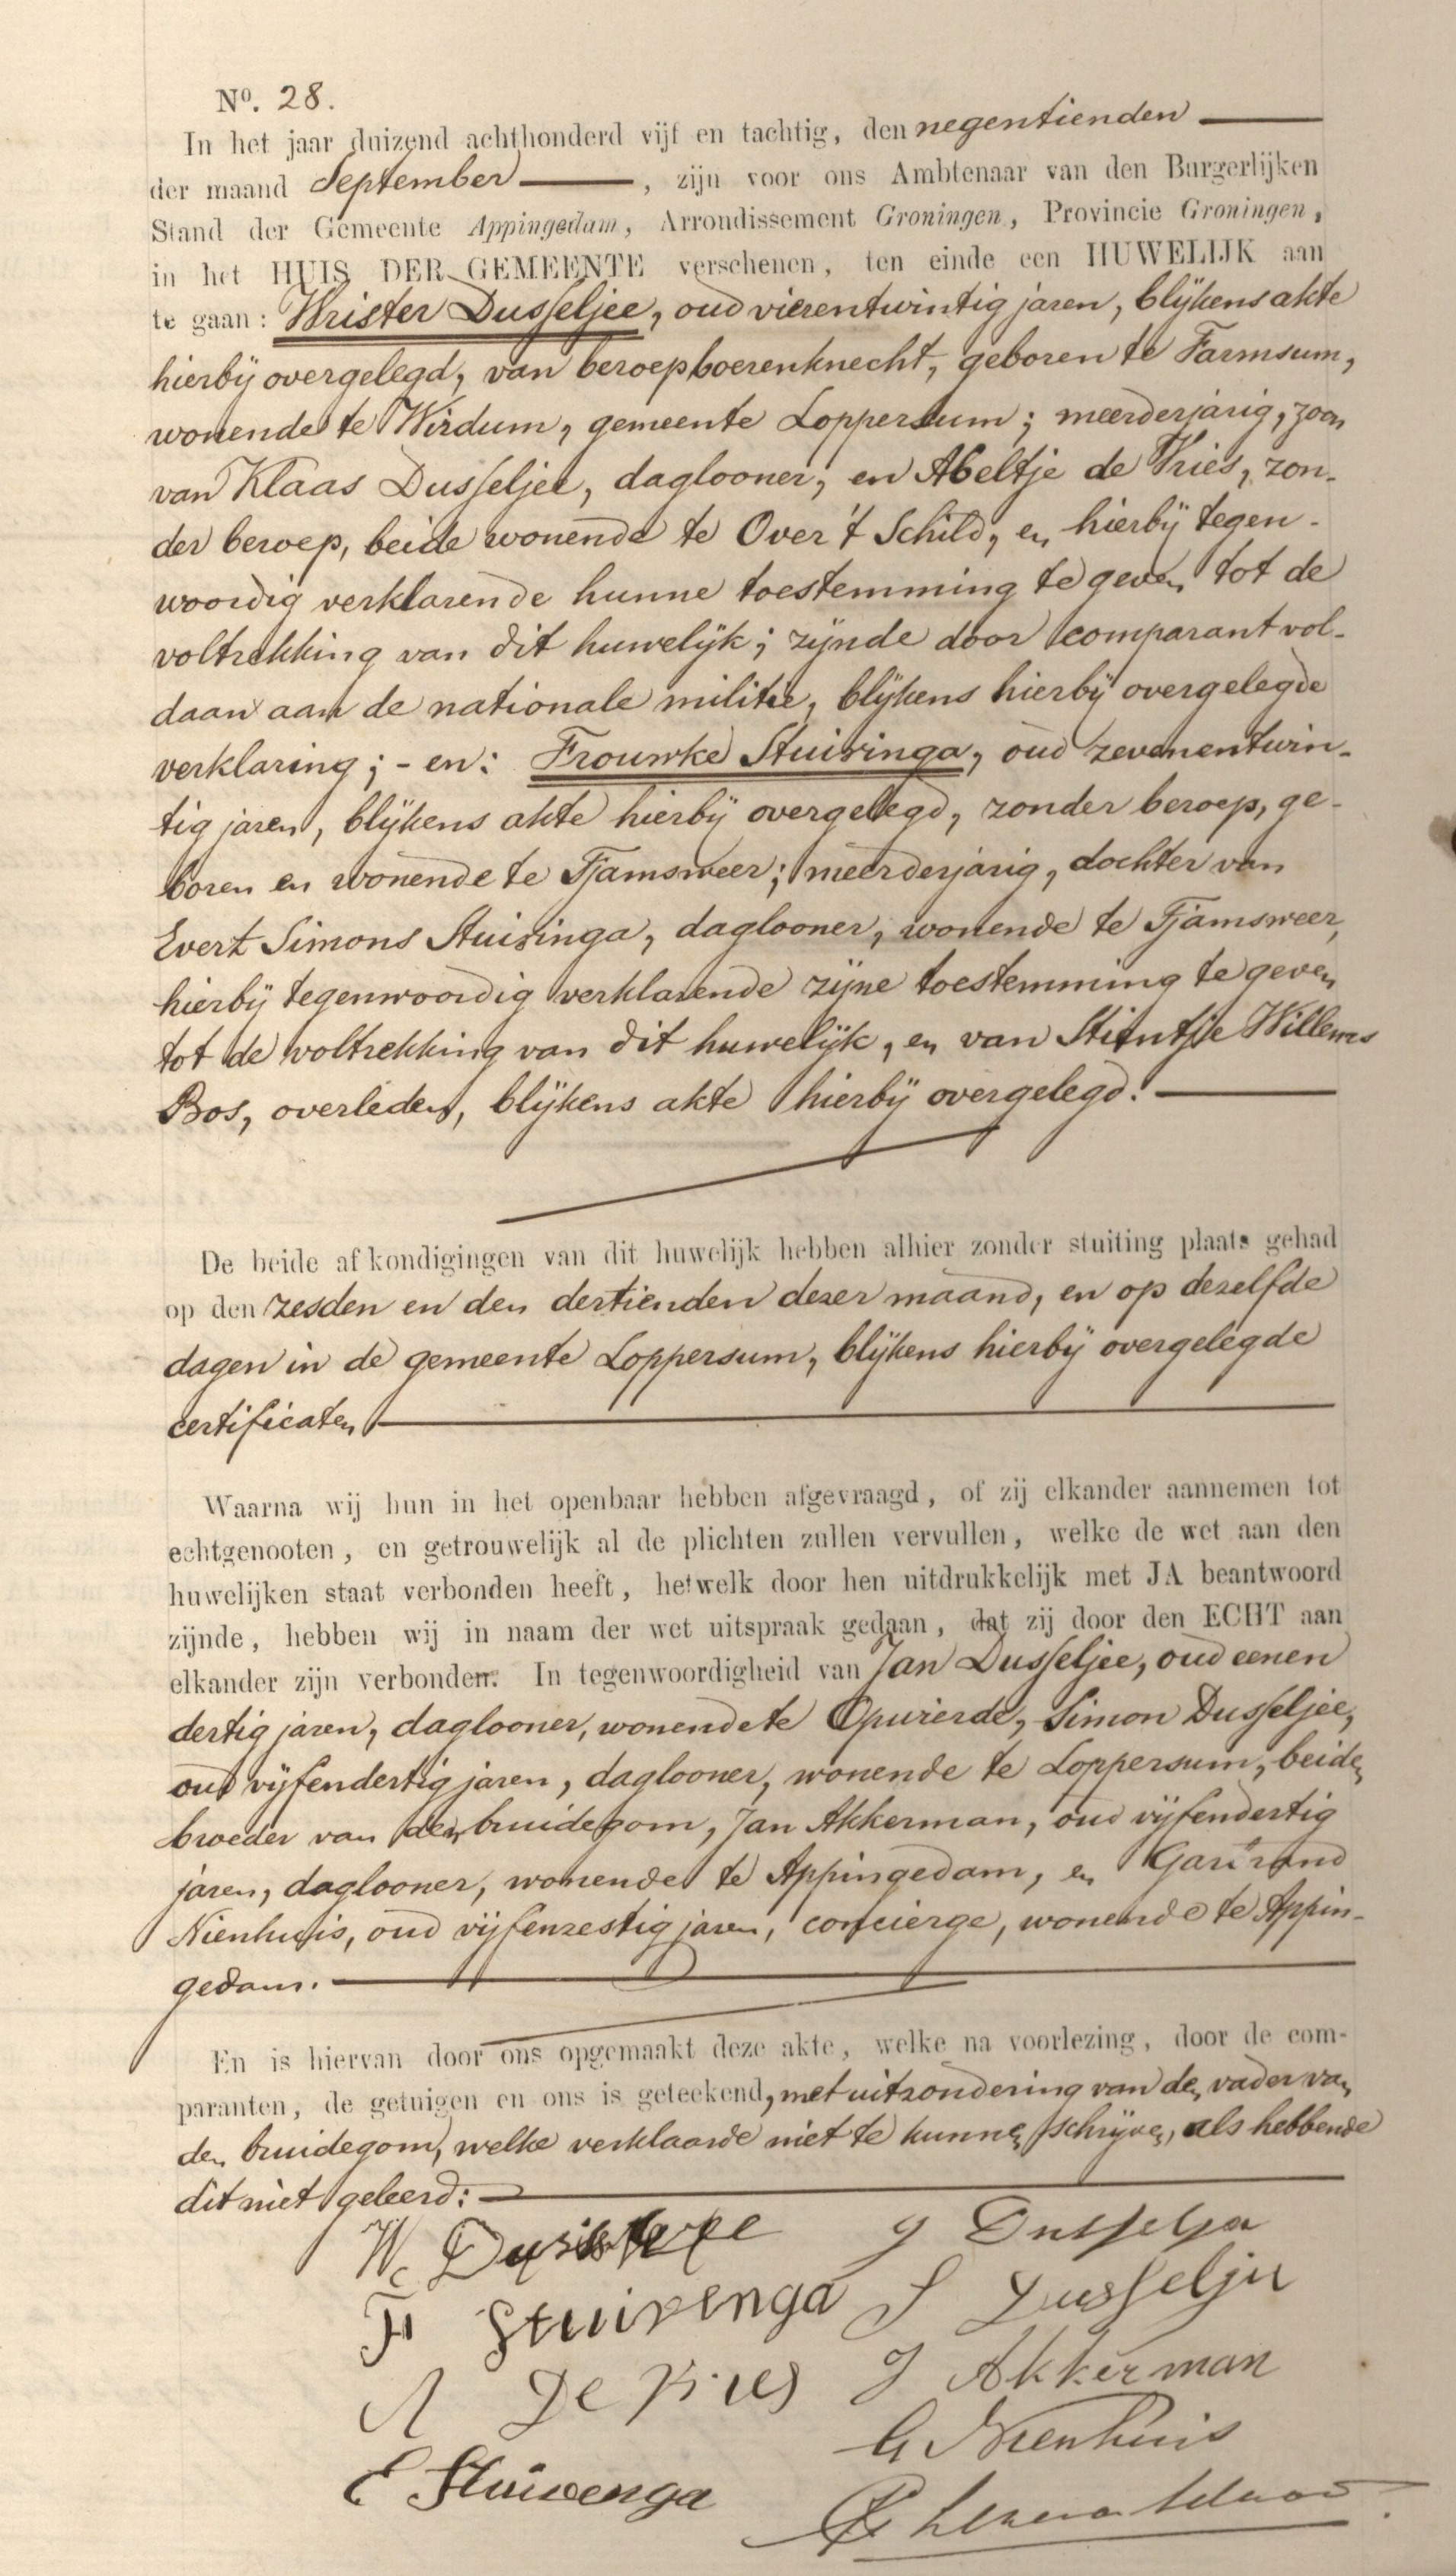 Nº. 28.
In het jaar duizend achthonderd vijf en tachtig, den negentienden
der maand September, zijn voor ons Ambtenaar van den Burgerlijken
Stand der Gemeente Appingedam, Arrondissement Groningen, Provincie Groningen,
in het HUIS DER GEMEENTE verschenen, ten einde een HUWELIJK aan
te gaan: Wrister Dusseljee, oud vierentwintig jaren, blijkens akte
hierbij overgelegd, van beroep boerenknecht, geboren te Farmsum,
wonende te Wirdum, gemeente Loppersum; meerderjarig, zoon
van Klaas Dusseljee, daglooner, en Abeltje de Vries, zon-
der beroep, beide wonende te Over 't Schild, en hierbij tegen-
woordig verklarende hunne toestemming te geven tot de
voltrekking van dit huwelijk; zijnde door comparant vol-
daan aan de nationale militie, blijkens hierbij overgelegde
verklaring; - en: Frouwke Stuivinga, oud zevenentwin-
tig jaren, blijkens akte hierbij overgelegd, zonder beroep, ge-
boren en wonende te Tjamsweer; meerderjarig, dochter van
Evert Simons Stuivinga, daglooner, wonende te Tjamsweer,
hierbij tegenwoordig verklarende zijne toestemming te geven
tot de voltrekking van dit huwelijk, en van Stientje Willems
Bos, overleden, blijkens akte hierbij overgelegd.
De beide afkondigingen van dit huwelijk hebben alhier zonder stuiting plaats gehad
op den zesden en den dertienden dezer maand, en op dezelfde
dagen in de gemeente Loppersum, blijkens hierbij overgelegde
certificaten
Waarna wij hun in het openbaar hebben afgevraagd, of zij elkander aannemen tot
echtgenooten, en getrouwelijk al de plichten zullen vervullen, welke de wet aan den
huwelijken staat verbonden heeft, hetwelk door hen uitdrukkelijk met JA beantwoord
zijnde, hebben wij in naam der wet uitspraak gedaan, dat zij door den ECHT aan
elkander zijn verbonden. In tegenwoordigheid van Jan Dusseljee, oud eenen
dertig jaren, daglooner, wonende te Opwierde, Simon Dusseljee,
oud vijfendertig jaren, daglooner, wonende te Loppersum, beiden
broeder van den bruidegom, Jan Akkerman, oud vijfendertig
jaren, daglooner, wonende te Appingedam, en
Nienhuis, oud vijfenzestig jaren, concierge, wonende te Appin-
gedam.
En is hiervan door ons opgemaakt deze akte, welke na voorlezing, door de com-
paranten, de getuigen en ons is geteekend, met uitzondering van den vader van
den bruidegom, welke verklaarde niet te kunnen schrijven, als hebbende
dit niet geleerd:
W J Dusselja
F Stuivenga S Dusselju
A De Vries J Akkerman
G Nienhuis
E Stuivenga